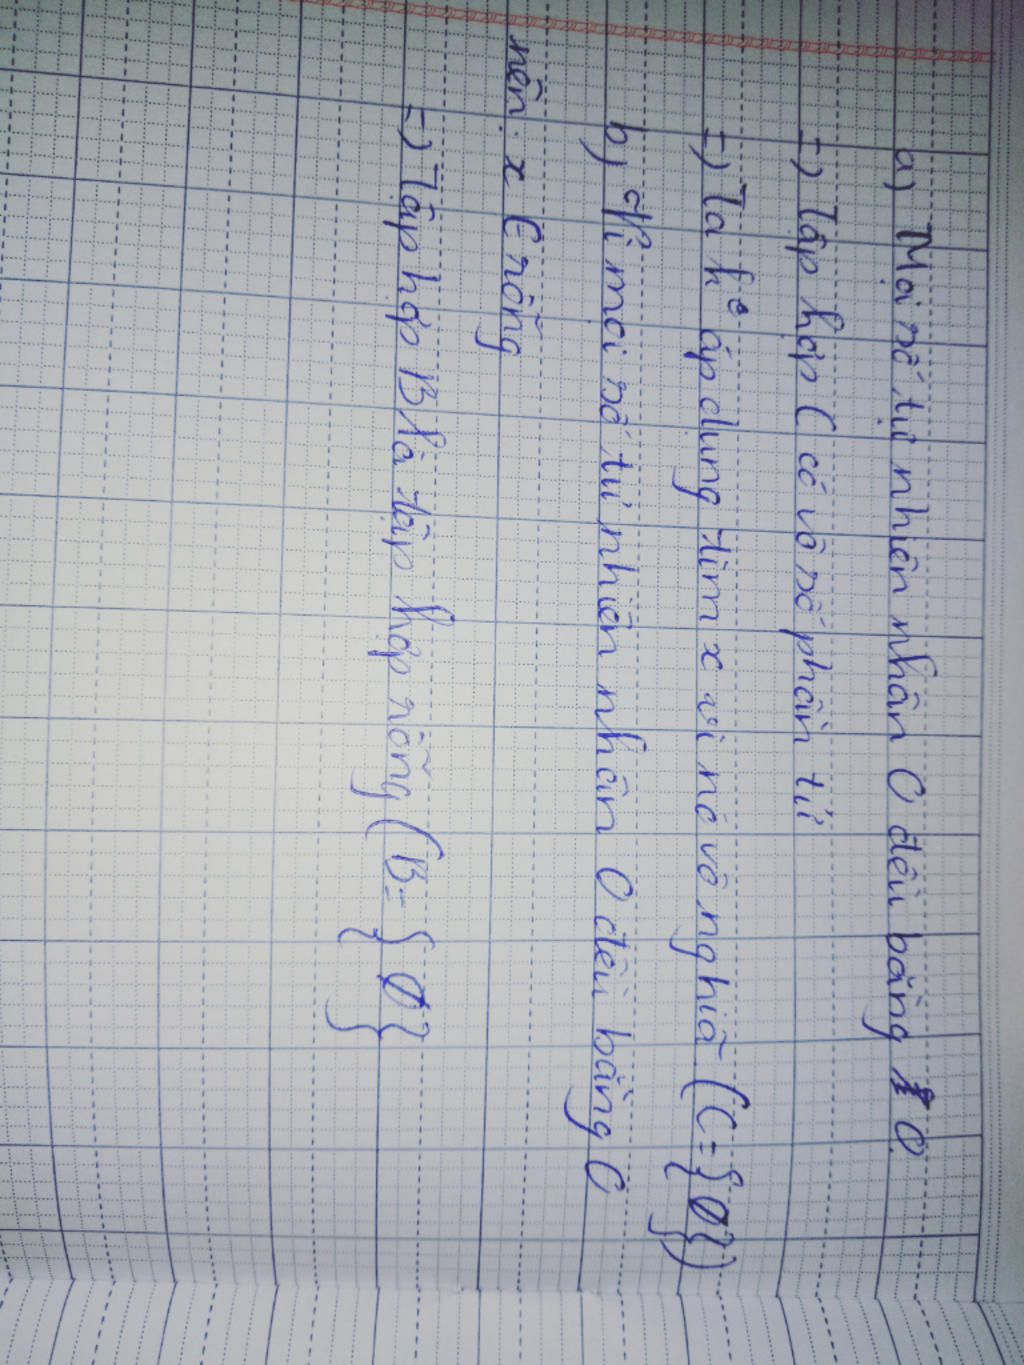 a) Mọi số tự nhiên nhân 0 đều bằng 0.
=) Tập hợp C có vô số phần tử
=) Ta k° áp dụng tìm x vì nó vô nghĩa (C = {Ø})
b) Vì mọi số tự nhiên nhân 0 đều bằng 0
nên x ∈ rỗng
=) Tập hợp B là tập hợp rỗng (B = {Ø}